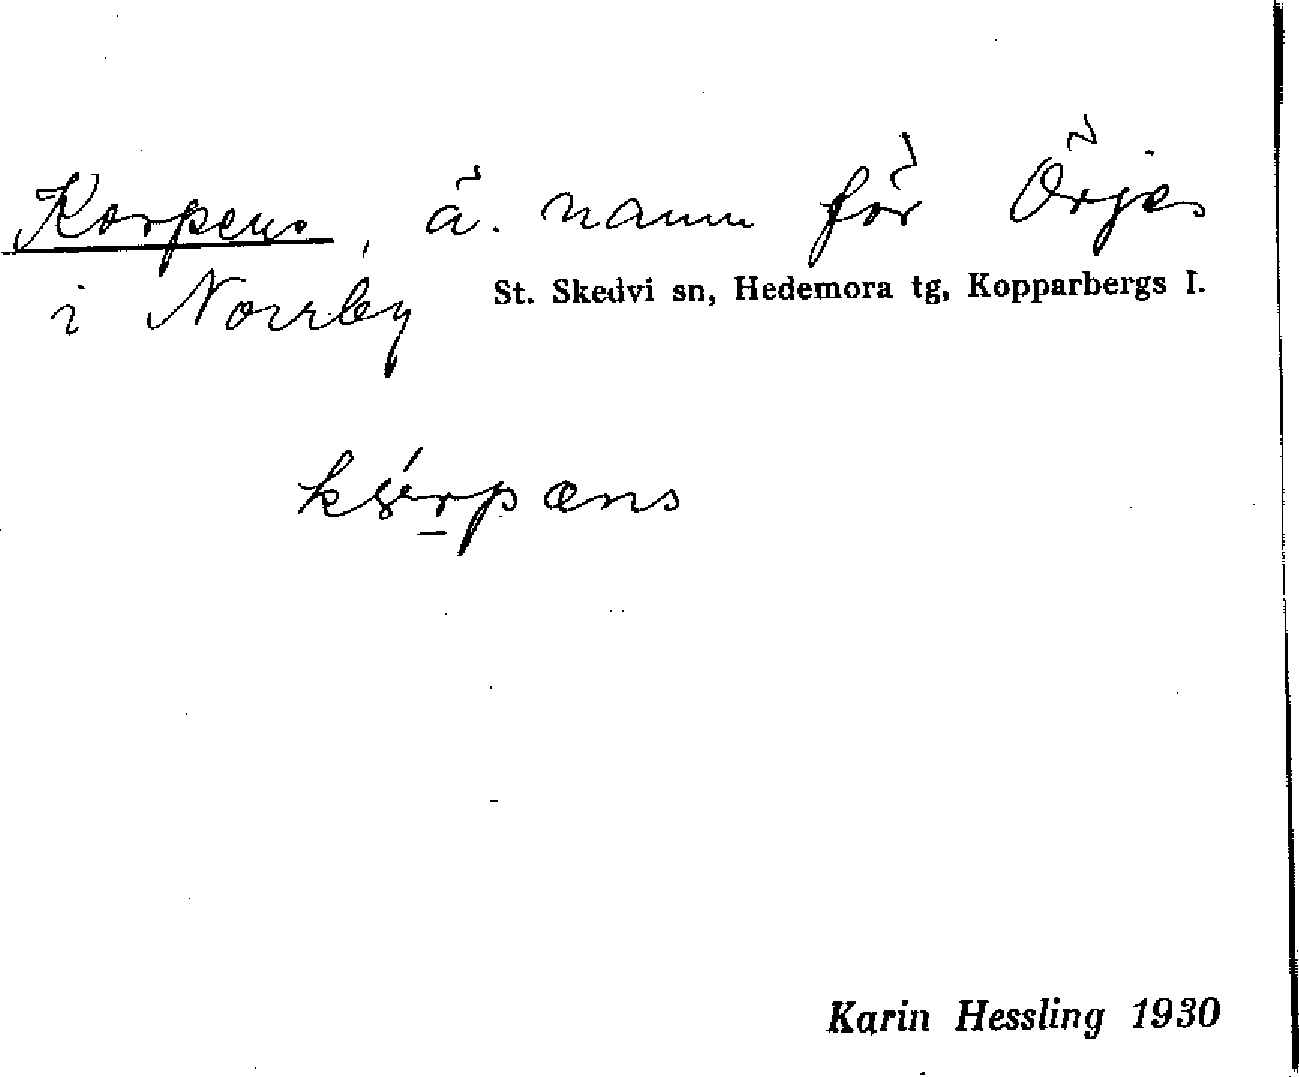 Korpens, ä. namn för Örjes
i Norrby St. Skedvi sn, Hedemora tg, Kopparbergs l.
Karin Hessling 1930